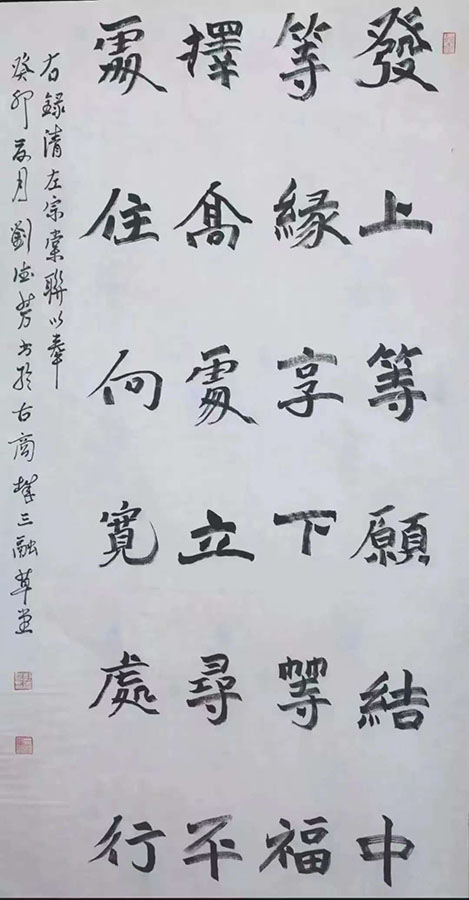 發上等願結中
等緣享下等福
擇髙處立尋平
處住向寬處行
右錄清左宗棠聯以奉
癸卯夏月劉德芳书於古商三融草堂